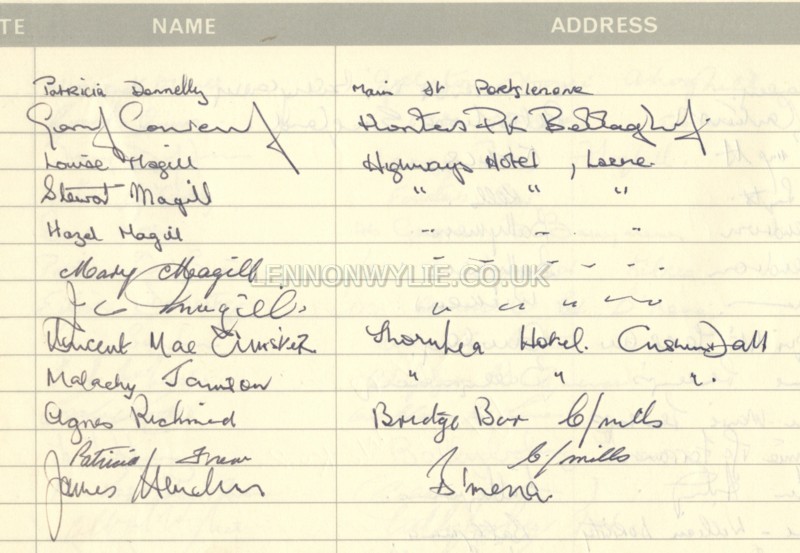 TE NAME ADDRESS
Patricia Donnelly Main St Portglenone
Conway Hunters Pk Bellaghy
Louise Magill Highways Hotel, Larne.
Stewart Magill " " "
Hazel Magill " " "
Mary Magill " " " " "
LENNONWYLIE.CO.UK
J C Magill. " " " "
Vincent Mac Thornlea Hotel. Cushendall
Malachy Jamison " " ".
Agnes Richmond Bridge Bar C/mills
Patricia C/mills
James B'mena.